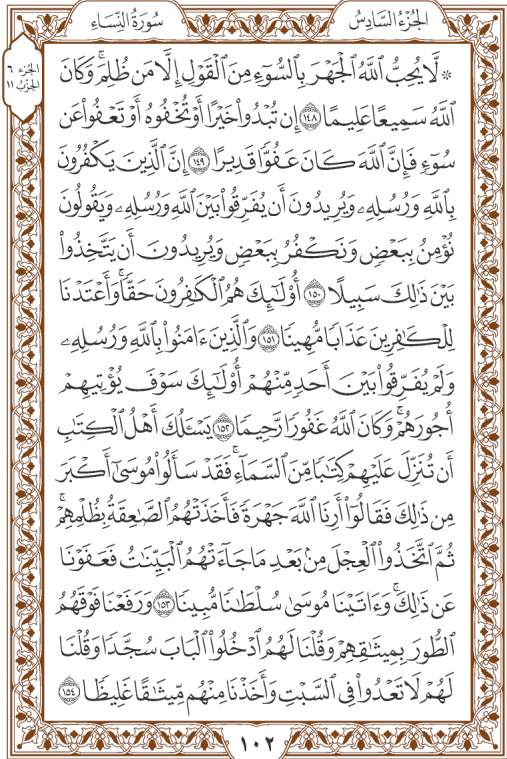 الجُزْءُ السَّادِسُ
سُورَةُ النِّسَاءِ
الجزء ٦
الحزب ١١
۞ لَّا يُحِبُّ ٱللَّهُ ٱلْجَهْرَ بِٱلسُّوٓءِ مِنَ ٱلْقَوْلِ إِلَّا مَن ظُلِمَۚ وَكَانَ
ٱللَّهُ سَمِيعًا عَلِيمًا ١٤٨ إِن تُبْدُوا۟ خَيْرًا أَوْ تُخْفُوهُ أَوْ تَعْفُوا۟ عَن
سُوٓءٍ فَإِنَّ ٱللَّهَ كَانَ عَفُوًّا قَدِيرًا ١٤٩ إِنَّ ٱلَّذِينَ يَكْفُرُونَ
بِٱللَّهِ وَرُسُلِهِۦ وَيُرِيدُونَ أَن يُفَرِّقُوا۟ بَيْنَ ٱللَّهِ وَرُسُلِهِۦ وَيَقُولُونَ
نُؤْمِنُ بِبَعْضٍ وَنَكْفُرُ بِبَعْضٍ وَيُرِيدُونَ أَن يَتَّخِذُوا۟
بَيْنَ ذَٰلِكَ سَبِيلًا ١٥٠ أُو۟لَـٰٓئِكَ هُمُ ٱلْكَـٰفِرُونَ حَقًّاۚ وَأَعْتَدْنَا
لِلْكَـٰفِرِينَ عَذَابًا مُّهِينًا ١٥١ وَٱلَّذِينَ ءَامَنُوا۟ بِٱللَّهِ وَرُسُلِهِۦ
وَلَمْ يُفَرِّقُوا۟ بَيْنَ أَحَدٍ مِّنْهُمْ أُو۟لَـٰٓئِكَ سَوْفَ يُؤْتِيهِمْ
أُجُورَهُمْۚ وَكَانَ ٱللَّهُ غَفُورًا رَّحِيمًا ١٥٢ يَسْـَٔلُكَ أَهْلُ ٱلْكِتَـٰبِ
أَن تُنَزِّلَ عَلَيْهِمْ كِتَـٰبًا مِّنَ ٱلسَّمَآءِۚ فَقَدْ سَأَلُوا۟ مُوسَىٰٓ أَكْبَرَ
مِن ذَٰلِكَ فَقَالُوٓا۟ أَرِنَا ٱللَّهَ جَهْرَةً فَأَخَذَتْهُمُ ٱلصَّـٰعِقَةُ بِظُلْمِهِمْۚ
ثُمَّ ٱتَّخَذُوا۟ ٱلْعِجْلَ مِنۢ بَعْدِ مَا جَآءَتْهُمُ ٱلْبَيِّنَـٰتُ فَعَفَوْنَا
عَن ذَٰلِكَۚ وَءَاتَيْنَا مُوسَىٰ سُلْطَـٰنًا مُّبِينًا ١٥٣ وَرَفَعْنَا فَوْقَهُمُ
ٱلطُّورَ بِمِيثَـٰقِهِمْ وَقُلْنَا لَهُمُ ٱدْخُلُوا۟ ٱلْبَابَ سُجَّدًا وَقُلْنَا
لَهُمْ لَا تَعْدُوا۟ فِى ٱلسَّبْتِ وَأَخَذْنَا مِنْهُم مِّيثَـٰقًا غَلِيظًا ١٥٤
١٠٢